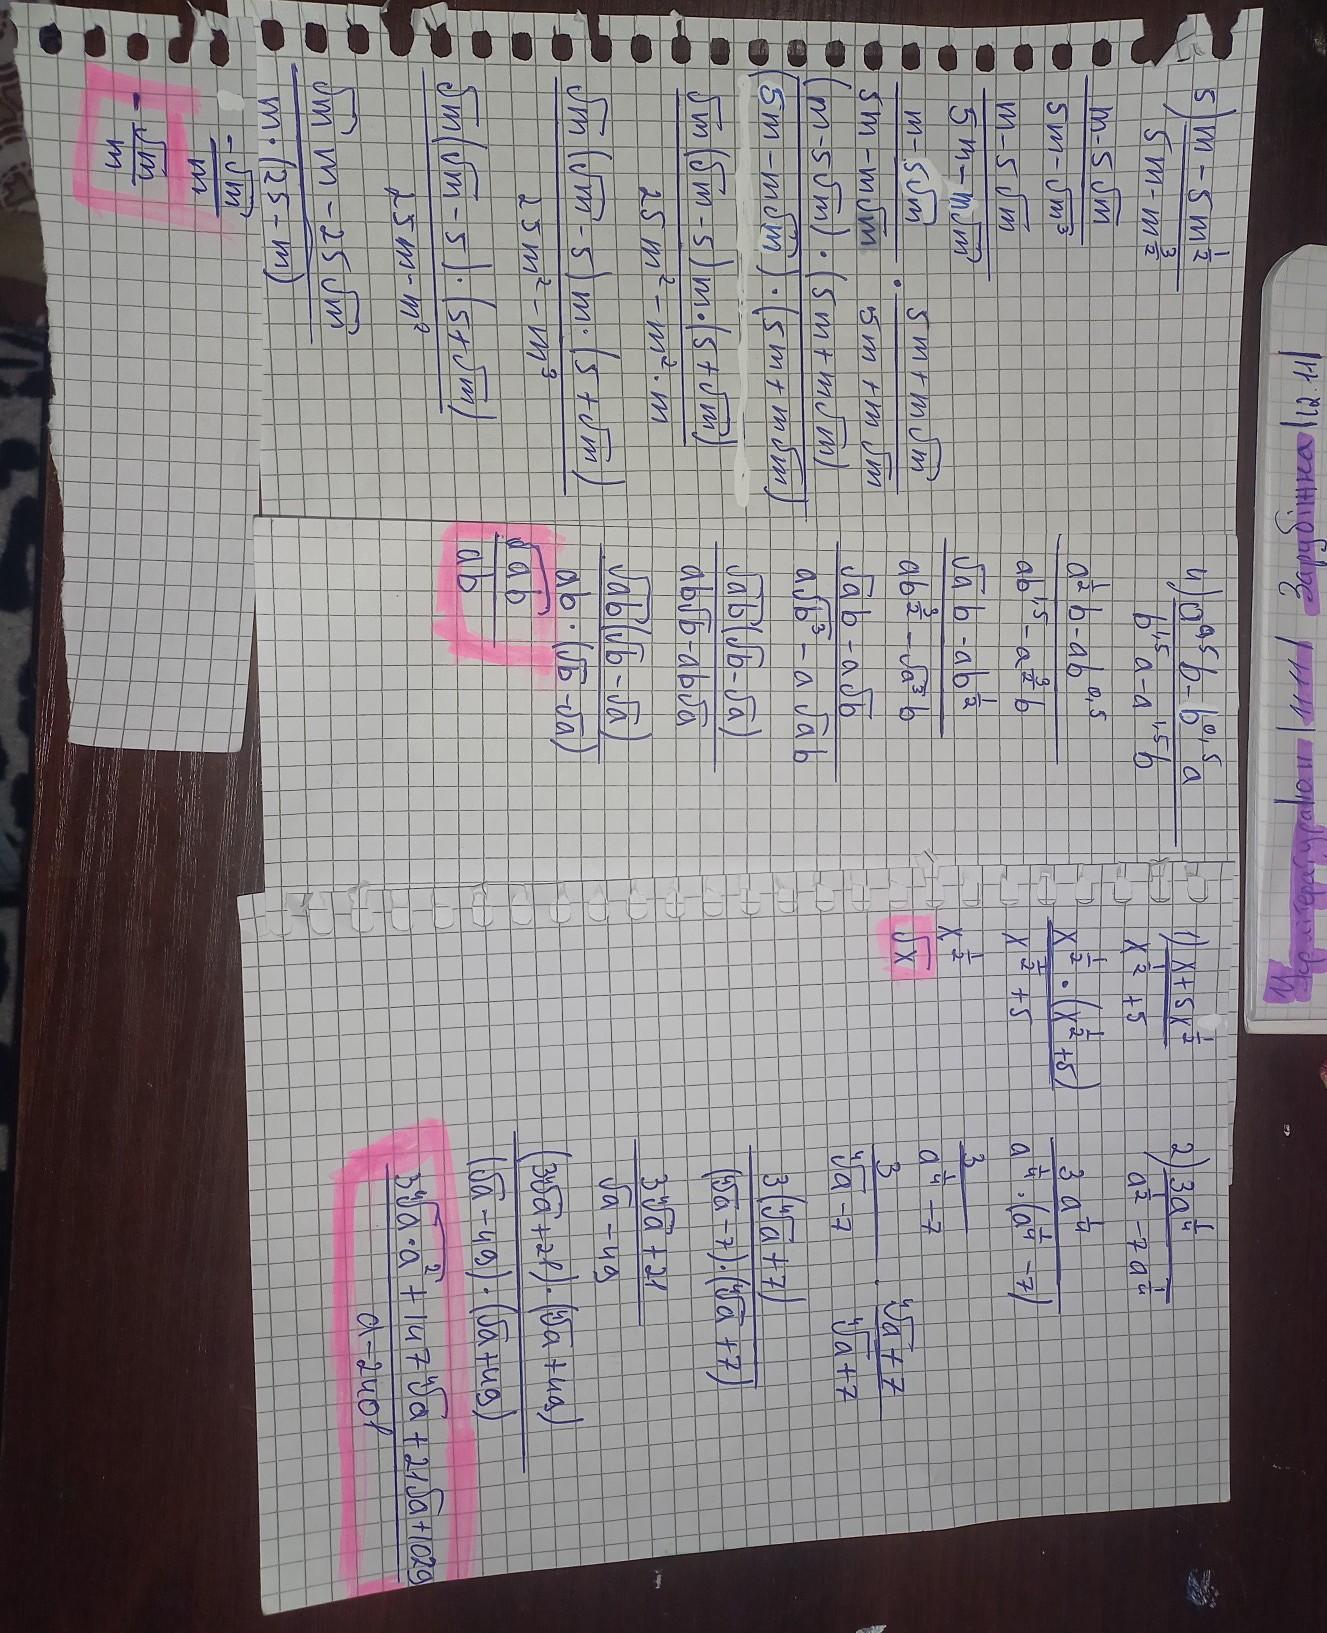 5) m-5m^{1/2} / 5m-m^{3/2}
m-5√m / 5m-√m³
m-5√m / 5m-m√m
m-5√m / 5m-m√m · 5m+m√m / 5m+m√m
(m-5√m)·(5m+m√m) / (5m-m√m)·(5m+m√m)
√m(√m-5)m·(5+√m) / 25m²-m²·m
√m(√m-5)m·(5+√m) / 25m²-m³
√m(√m-5)·(5+√m) / 25m-m²
√m m-25√m / m·(25-m)
-√m / m
-√m / m
4) a^{0,5}b-b^{0,5}a / b^{1,5}a-a^{1,5}b
a^{1/2}b-ab^{0,5} / ab^{1,5}-a^{3/2}b
√a b-ab^{1/2} / ab^{3/2}-√a³b
√a b-a√b / a√b³-a√ab
√ab(√b-√a) / ab√b-ab√a
√ab(√b-√a) / ab·(√b-√a)
√ab / ab
1) x+5x^{1/2} / x^{1/2}+5
x^{1/2}·(x^{1/2}+5) / x^{1/2}+5
x^{1/2}
√x
2) 3a^{1/4} / a^{1/2}-7a^{1/4}
3a^{1/4} / a^{1/4}·(a^{1/4}-7)
3 / a^{1/4}-7
3 / ⁴√a-7 · ⁴√a+7 / ⁴√a+7
3(⁴√a+7) / (⁴√a-7)·(⁴√a+7)
3⁴√a+21 / √a-49
(3⁴√a+21)·(√a+49) / (√a-49)·(√a+49)
3⁴√a·a²+147⁴√a+21√a+1029 / a-2401
Укрлітература 11.11 Зарубіжка 12.11